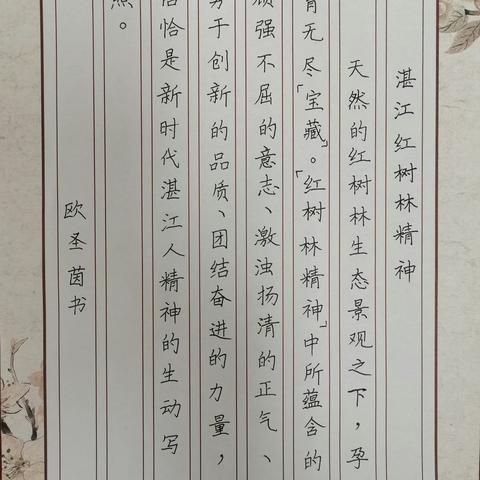 湛江红树林精神
天然的红树林生态景观之下，孕
育无尽「宝藏」。「红树林精神」中所蕴含的
顽强不屈的意志、激浊扬清的正气、
勇于创新的品质、团结奋进的力量，
恰恰是新时代湛江人精神的生动写
照。
欧圣茵书